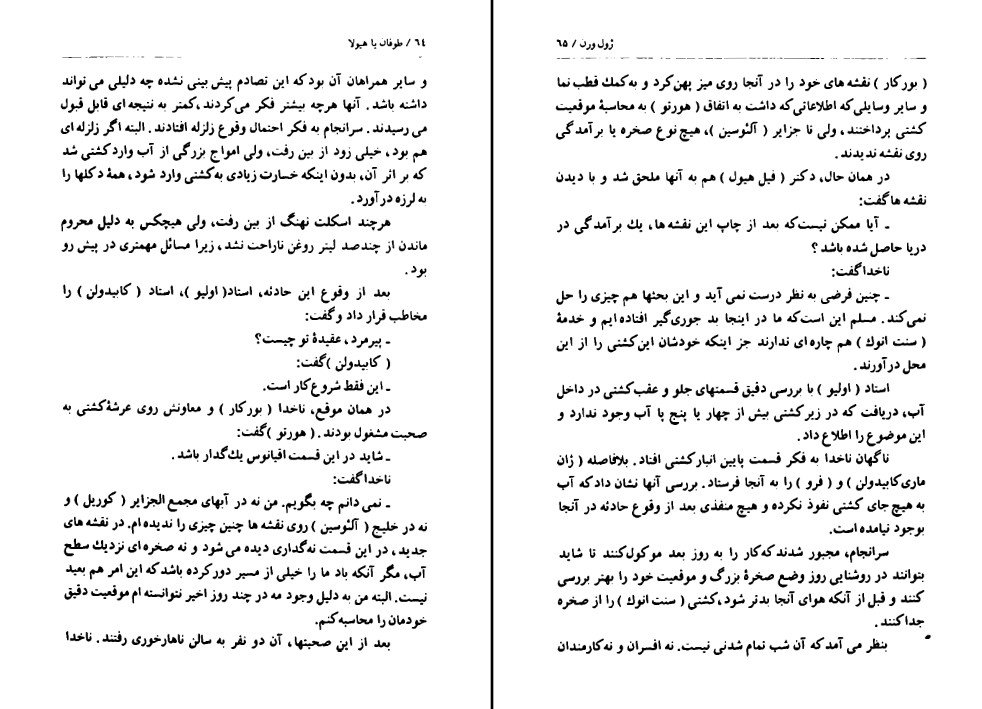 ۶۴ / طوفان یا هیولا
و سایر همراهان آن بود که این تصادم پیش بینی نشده چه دلیلی می تواند
داشته باشد . آنها هرچه بیشتر فکر می کردند ، کمتر به نتیجه ای قابل قبول
می رسیدند . سرانجام به فکر احتمال وقوع زلزله افتادند . البته اگر زلزله ای
هم بود ، خیلی زود از بین رفت، ولی امواج بزرگی از آب وارد کشتی شد
که بر اثر آن، بدون اینکه خسارت زیادی به کشتی وارد شود ، همهٔ دکلها را
به لرزه درآورد .
هرچند اسکلت نهنگ از بین رفت، ولی هیچکس به دلیل محروم
ماندن از چند صد لیتر روغن ناراحت نشد ، زیرا مسائل مهمتری در پیش رو
بود .
بعد از وقوع این حادثه، استاد ( اولیو )، استاد ( کابیدولن ) را
مخاطب قرار داد و گفت:
ـ پیرمرد ، عقیدهٔ تو چیست؟
( کابیدولن ) گفت:
ـ این فقط شروع کار است.
در همان موقع، ناخدا ( بورکار ) و معاونش روی عرشهٔ کشتی به
صحبت مشغول بودند . ( هورتو ) گفت:
ـ شاید در این قسمت اقیانوس یك گدار باشد .
ناخدا گفت:
ـ نمی دانم چه بگویم. من نه در آبهای مجمع الجزایر ( کوریل ) و
نه در خلیج ( آلئوسین ) روی نقشه ها چنین چیزی را ندیده ام. در نقشه های
جدید ، در این قسمت نه گداری دیده می شود و نه صخره ای نزدیك سطح
آب، مگر آنکه باد ما را خیلی از مسیر دور کرده باشد که این امر هم بعید
نیست. البته من به دلیل وجود مه در چند روز اخیر نتوانسته ام موقعیت دقیق
خودمان را محاسبه کنم.
بعد از این صحبتها، آن دو نفر به سالن ناهارخوری رفتند . ناخدا
ژول ورن / ۶۵
( بورکار ) نقشه های خود را در آنجا روی میز پهن کرد و به کمك قطب نما
و سایر وسایلی که اطلاعاتی که داشت به اتفاق ( هورتو ) به محاسبهٔ موقعیت
کشتی پرداختند، ولی تا جزایر ( آلئوسین )، هیچ نوع صخره یا برآمدگی
روی نقشه ندیدند .
در همان حال، دکتر ( فیل هیول ) هم به آنها ملحق شد و با دیدن
نقشه ها گفت:
ـ آیا ممکن نیست که بعد از چاپ این نقشه ها، یك برآمدگی در
دریا حاصل شده باشد ؟
ناخدا گفت:
ـ چنین فرضی به نظر درست نمی آید و این بحثها هم چیزی را حل
نمی کند . مسلم این است که ما در اینجا بد جوری گیر افتاده ایم و خدمهٔ
( سنت انوك ) هم چاره ای ندارند جز اینکه خودشان این کشتی را از این
محل در آورند.
استاد ( اولیو ) با بررسی دقیق قسمتهای جلو و عقب کشتی در داخل
آب، دریافت که در زیر کشتی بیش از چهار یا پنج پا آب وجود ندارد و
این موضوع را اطلاع داد.
ناگهان ناخدا به فکر قسمت پایین انبار کشتی افتاد. بلافاصله ( ژان
ماری کابیدولن ) و ( فرو ) را به آنجا فرستاد . بررسی آنها نشان داد که آب
به هیچ جای کشتی نفوذ نکرده و هیچ منفذی بعد از وقوع حادثه در آنجا
بوجود نیامده است.
سرانجام، مجبور شدند که کار را به روز بعد موکول کنند تا شاید
بتوانند در روشنایی روز وضع صخرهٔ بزرگ و موقعیت خود را بهتر بررسی
کنند و قبل از آنکه هوای آنجا بدتر شود ، کشتی ( سنت انوك ) را از صخره
جدا کنند .
بنظر می آمد که آن شب تمام شدنی نیست. نه افسران و نه کارمندان